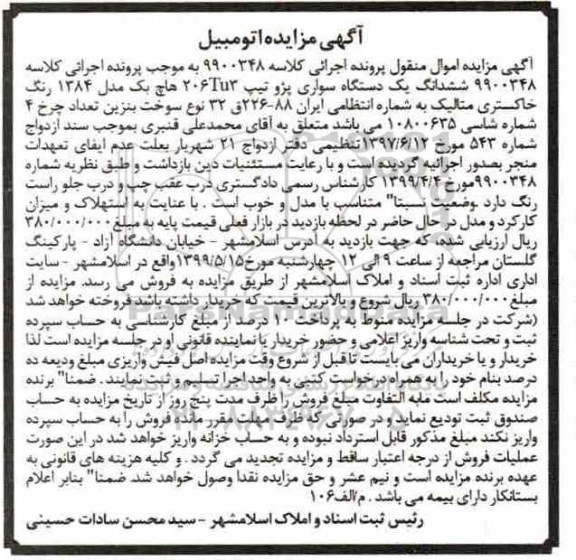 آگهی مزایده اتومبیل
آگهی مزایده اموال منقول پرونده اجرائی کلاسه ۹۹۰۰۳۴۸ به موجب پرونده اجرائی کلاسه
۹۹۰۰۳۴۸ ششدانگ یک دستگاه سواری پژو تیپ ۲۰۶Tu۳ هاچ بک مدل ۱۳۸۴ رنگ
خاکستری متالیک به شماره انتظامی ایران ۸۸-۲۲۶ق ۳۲ نوع سوخت بنزین تعداد چرخ ۴
شماره شاسی ۱۰۸۰۰۶۳۵ می باشد متعلق به آقای محمدعلی قنبری بموجب سند ازدواج
شماره ۵۴۳ مورخ ۱۳۹۷/۶/۱۲ تنظیمی دفتر ازدواج ۲۱ شهریار بعلت عدم ایفای تعهدات
منجر بصدور اجرائیه گردیده است و با رعایت مستثنیات دین بازداشت و طبق نظریه شماره
۹۹۰۰۳۴۸مورخ ۱۳۹۹/۴/۴ کارشناس رسمی دادگستری درب عقب چپ و درب جلو راست
رنگ دارد .وضعیت نسبتا" متناسب با مدل و خوب است . با عنایت به استهلاک و میزان
کارکرد و مدل در حال حاضر در لحظه بازدید در بازار فعلی قیمت پایه به مبلغ ۳۸۰/۰۰۰/۰۰۰
ریال ارزیابی شده، که جهت بازدید به آدرس اسلامشهر - خیابان دانشگاه آزاد - پارکینگ
گلستان مراجعه از ساعت ۹ الی ۱۲ چهارشنبه مورخ۱۳۹۹/۵/۱۵واقع در اسلامشهر - سایت
اداری اداره ثبت اسناد و املاک اسلامشهر از طریق مزایده به فروش می رسد. مزایده از
مبلغ۳۸۰/۰۰۰/۰۰۰ ریال شروع و بالاترین قیمت که خریدار داشته باشد فروخته خواهد شد
(شرکت در جلسه مزایده منوط به پرداخت ۱۰ درصد از مبلغ کارشناسی به حساب سپرده
ثبت و تحت شناسه واریز اعلامی و حضور خریدار یا نماینده قانونی او در جلسه مزایده است لذا
خریدار و یا خریداران می بایست تا قبل از شروع وقت مزایده اصل فیش واریزی مبلغ ودیعه ده
درصد بنام خود را به همراه درخواست کتبی به واحد اجرا تسلیم و ثبت نمایند . ضمنا" برنده
مزایده مکلف است مابه التفاوت مبلغ فروش را ظرف مدت پنج روز از تاریخ مزایده به حساب
صندوق ثبت تودیع نماید و در صورتی که ظرف مهلت مقرر مانده فروش را به حساب سپرده
واریز نکند مبلغ مذکور قابل استرداد نبوده و به حساب خزانه واریز خواهد شد در این صورت
عملیات فروش از درجه اعتبار ساقط و مزایده تجدید می گردد . و کلیه هزینه های قانونی به
عهده برنده مزایده است و نیم عشر و حق مزایده نقدا وصول خواهد شد. ضمنا" بنابر اعلام
بستانکار دارای بیمه می باشد . م الف۱۰۶
رئیس ثبت اسناد و املاک اسلامشهر - سید محسن سادات حسینی